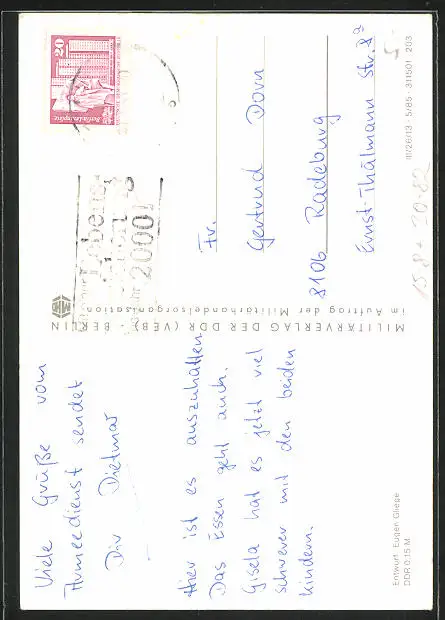 Viele Grüße vom
Armeedienst sendet
Dir Dietmar
Hier ist es auszuhalten.
Das Essen geht auch.
Gisela hat es jetzt viel
schwerer mit den beiden
Kindern.
Entwurf: Eugen Gliege
DDR 0,15 M
MILITÄRVERLAG DER DDR (VEB) - BERLIN
im Auftrag der Militärhandelsorganisation
20
Leninplatz
Lebens
20001
Fr.
Gertrud Dorn
8106 Radeburg
Ernst-Thälmann Str. 8a
III/26/13 · 5/85 · 311501 203
5.-